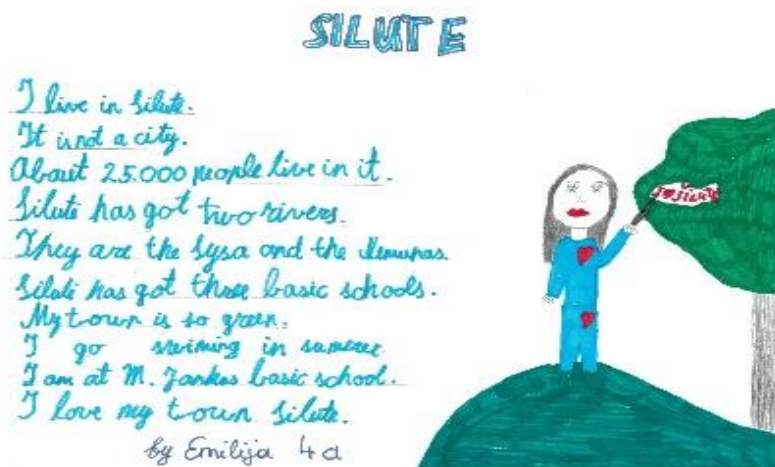 SILUTE
I live in Silute.
It is not a city.
About 25.000 people live in it.
Silute has got two rivers.
They are the Sysa and the Nemunas.
Silute has got three basic schools.
My town is so green.
I go swiming in summer
I am at M. Jankus basic school.
I love my town Silute.
by Emilija 4a